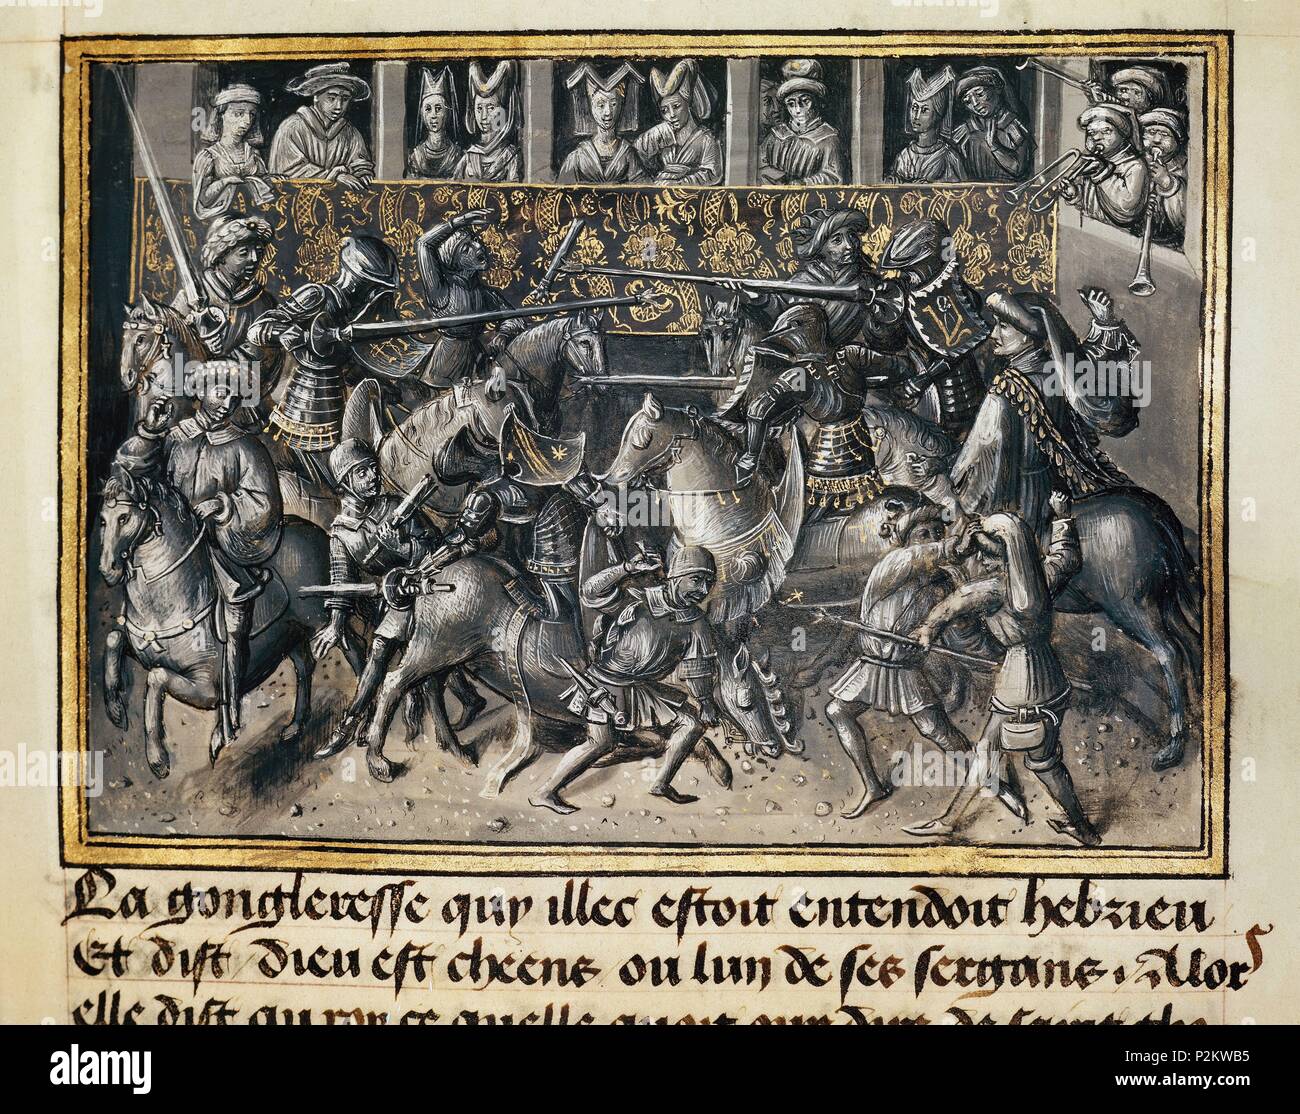 La gongleresse quy illec estoit entendoit hebrieu
Et dist dieu est cheens ou lun de ses sergans, Alors
elle dist au roy ce quelle
alamy
Image ID: P2KWB5
www.alamy.com